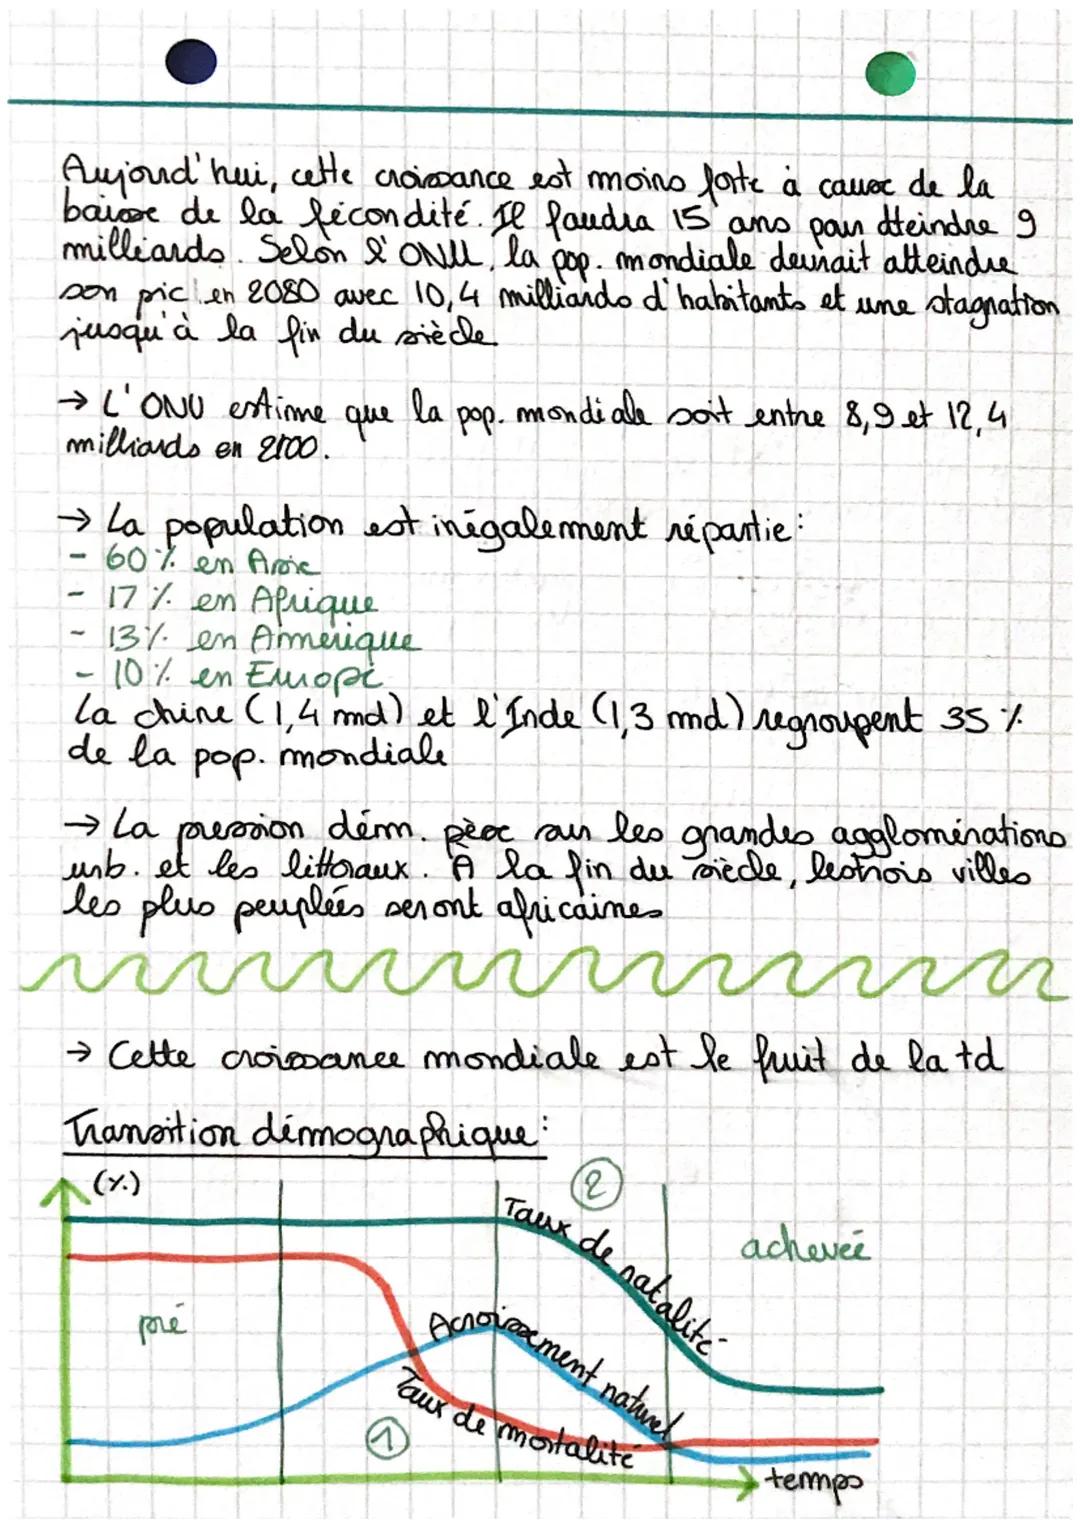 Aujourd'hui, cette croissance est moins forte à cause de la
baisse de la fécondité. Il faudra 15 ans pour atteindre 9
milliards. Selon l'ONU, la pop. mondiale devrait atteindre
son pic en 2080 avec 10,4 milliards d'habitants et une stagnation
jusqu'à la fin du siècle
→ L'ONU estime que la pop. mondiale soit entre 8,9 et 12,4
milliards en 2100.
→ La population est inégalement répartie :
- 60 % en Asie
- 17 % en Afrique
- 13 % en Amérique
- 10 % en Europe
La chine (1,4 md) et l'Inde (1,3 md) regroupent 35 %
de la pop. mondiale
→ La pression dém. pèse sur les grandes agglomérations
urb. et les littoraux. A la fin du siècle, les trois villes
les plus peuplées seront africaines
→ Cette croissance mondiale est le fruit de la td
Transition démographique :
(%)
2
Taux de natalité
achevée
pré
Acroissement naturel
Taux de mortalité
1
temps